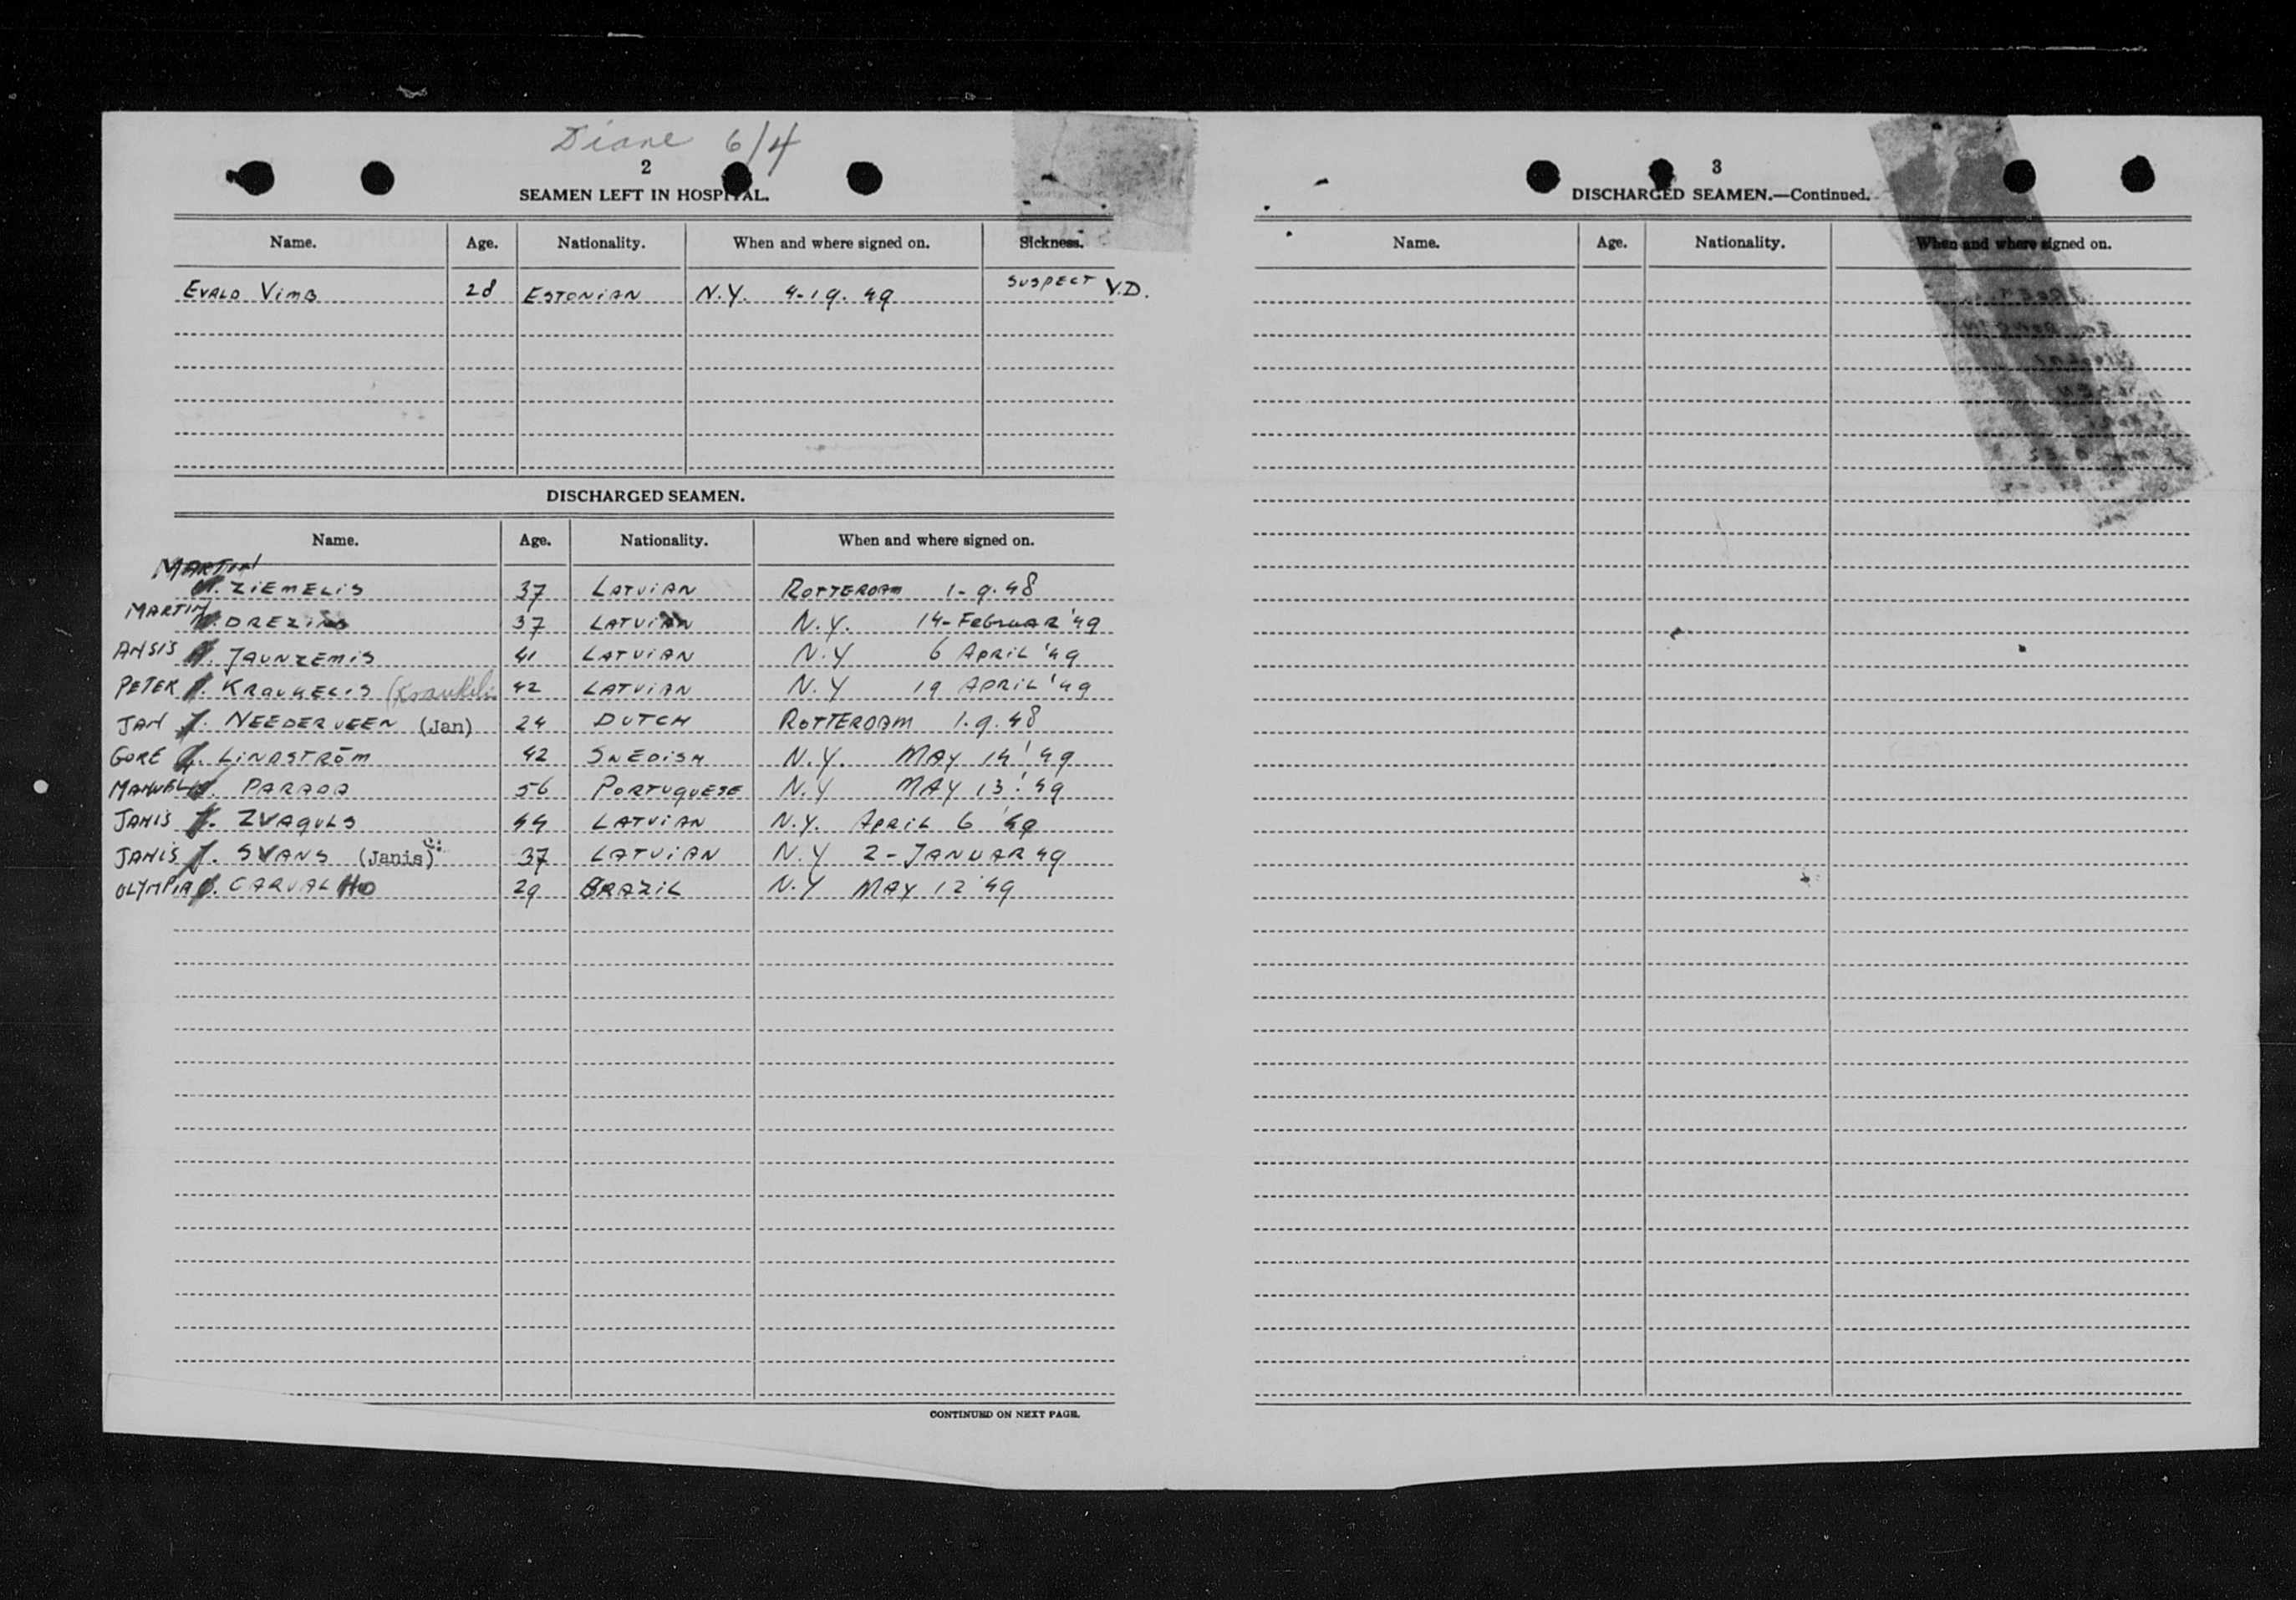 Diane 6/4
2
SEAMEN LEFT IN HOSPITAL.
Name. Age. Nationality. When and where signed on. Sickness.
EVALD VIMB 28 ESTONIAN N.Y. 4-19.49 SUSPECT V.D.
DISCHARGED SEAMEN.
Name. Age. Nationality. When and where signed on.
MARTIN
ZIEMELIS 37 LATVIAN ROTTERDAM 1-9.48
MARTIN DREZINS 37 LATVIAN N.Y. 14-FEBRUAR '49
ANSIS JAUNZEMIS 41 LATVIAN N.Y 6 APRIL '49
PETER KRAUKELIS (Kraukelis 42 LATVIAN N.Y 19 APRIL '49
JAN J. NEEDERVEEN (Jan) 24 DUTCH ROTTERDAM 1.9.48
GORE LINDSTRÖM 42 SWEDISH N.Y. MAY 14 '49
MANUEL PARADA 56 PORTUGUESE N.Y MAY 13 '49
JANIS J. ZVAGULS 44 LATVIAN N.Y. APRIL 6 '49
JANIS J. SVANS (Janis) 37 LATVIAN N.Y 2-JANUAR 49
OLYMPIA O. CARVALHO 29 BRAZIL N.Y MAY 12 '49
CONTINUED ON NEXT PAGE.
3
DISCHARGED SEAMEN.—Continued.
Name. Age. Nationality. When and where signed on.